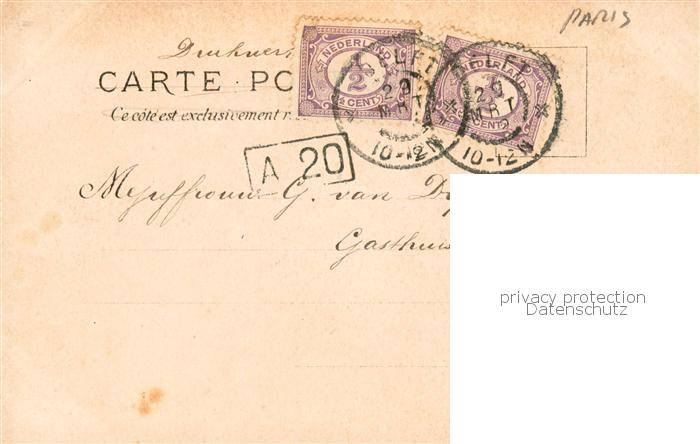 PARIS
NEDERLAND
1/2
½ CENT
NEDERLAND
CENT
LFT
29
MRT
10-12N
FT
29
MRT
10-12N
CARTE PO
Ce côté est exclusivement r
A 20
Mejuffrouw G. van
Gasthuis
privacy protection
Datenschutz